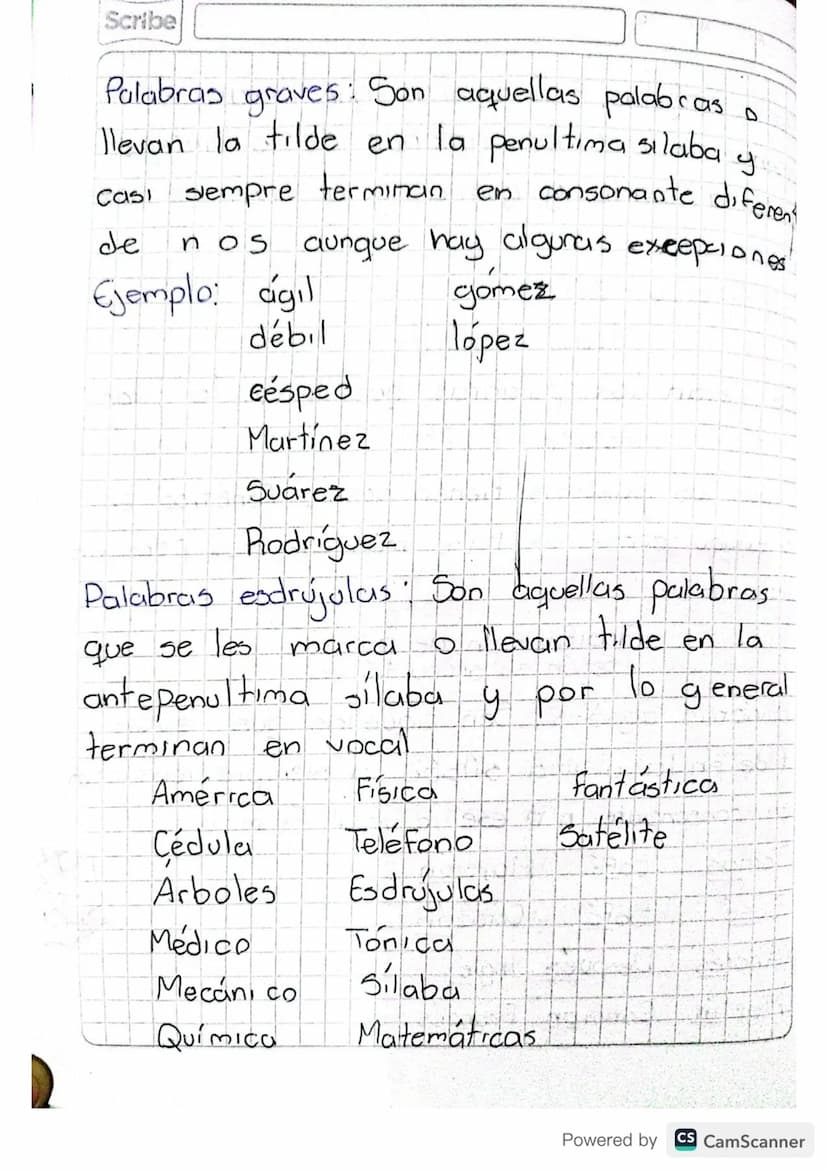 Scribe
Palabras graves: Son aquellas palabras o
llevan la tilde en la penultima silaba y
casi siempre terminan en consonante diferent
de n o s aunque hay algunas excepciones
Ejemplo: ágil gómez
débil lópez
césped
Martínez
Suárez
Rodríguez
Palabras esdrújulas: Son aquellas palabras
que se les marca o llevan tilde en la
antepenultima sílaba y por lo general
terminan en vocal
América Física fantástica
Cédula Teléfono Satélite
Árboles Esdrújulas
Médico Tónica
Mecánico Sílaba
Química Matemáticas
Powered by CS CamScanner